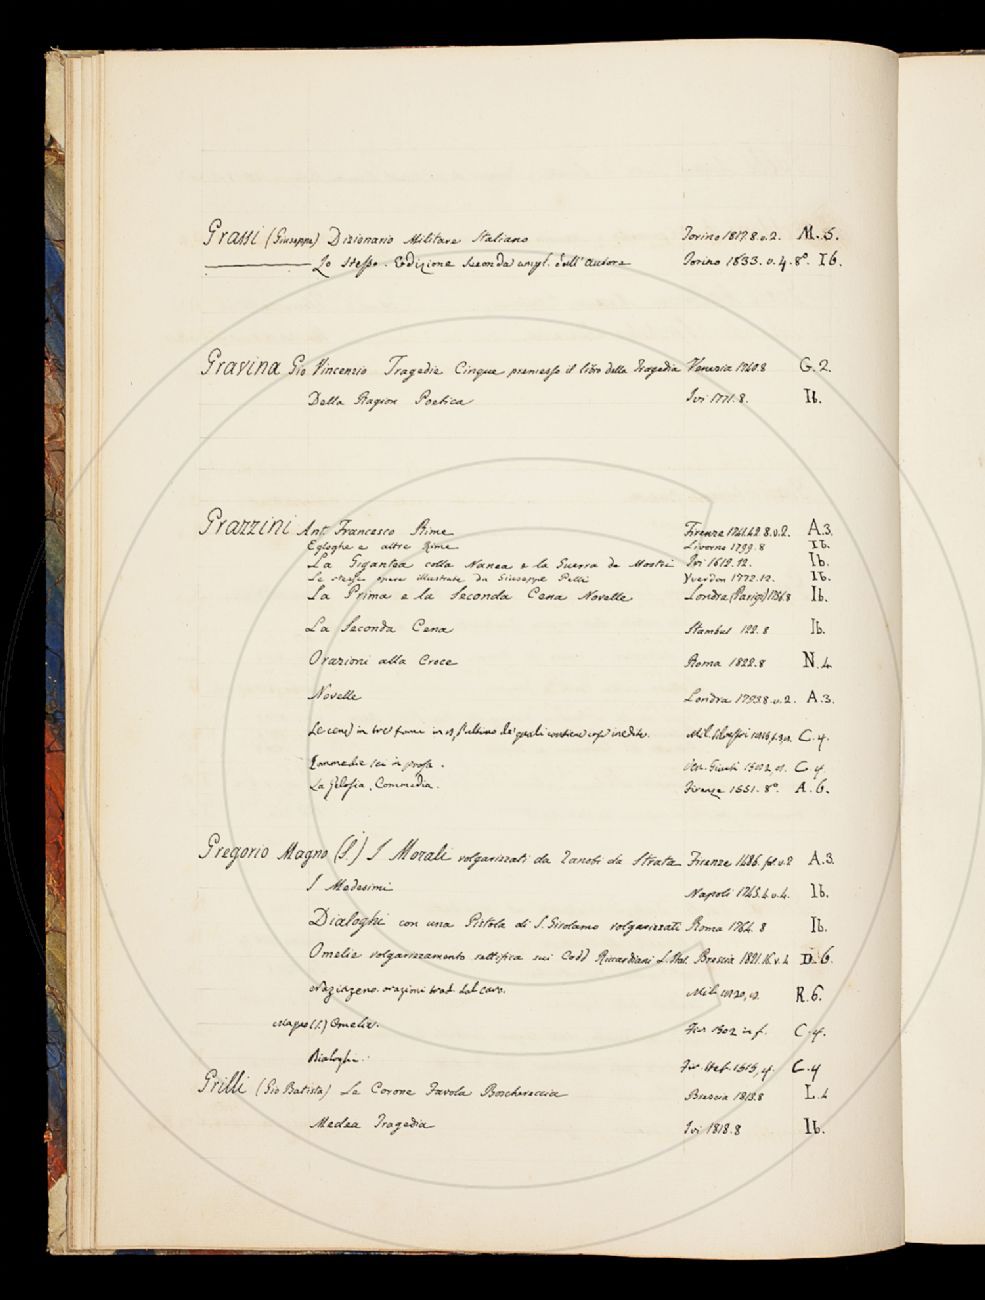 Grassi (Giuseppe) Dizionario Militare Italiano Torino 1817. 8. v. 2. M. 5.
Lo Stesso. Edizione Seconda ampl. dall' Autore Torino 1833. v. 4. 8°. Ib.
Gravina Gio Vincenzio Tragedie Cinque premesso il libro della Tragedia Venezia 1740. 8 G. 2.
Della Ragion Poetica Ivi 1771. 8. Ib.
Grazzini Ant. Francesco Rime Firenze 1741.42 8. v. 2. A. 3.
Egloghe e altre Rime Livorno 1799. 8 Ib.
La Gigantea colla Nanea e la Guerra de Mostri Ivi 1612. 12. Ib.
Le stesse opere illustrate da Giuseppe Pelli Yverdon 1772. 12. Ib.
La Prima e la Seconda Cena Novelle Londra (Parigi) 1756. 8 Ib.
La Seconda Cena Stambul 122. 8 Ib.
Orazioni alla Croce Roma 1822. 8 N. 4
Novelle Londra 1793. 8. v. 2. A. 3.
Le cene in tre inedite. Mil. Silvestri C. 4.
Commedie sei in prosa. Ven. Giunti 1582, C. 4
La Gelosia, Commedia. Firenze 1551. 8°. A. 6.
Gregorio Magno (S.) I Morali volgarizzati da Zanobi da Strata Firenze 1486. fol. v. 2 A. 3.
I Medesimi Napoli 1745. 4. v. 4. Ib.
Dialoghi con una Pistola di S. Girolamo volgarizzati Roma 1764. 8 Ib.
Omelie volgarizzamento sui Codd Riccardiani Brescia 1821. 16. v. 4 D. 6.
Nazianzeno. orazioni trad. dal Caro. Mil. R. 6.
Magno (S.) Omelie. Fir 1502 in f. C. 4.
Dialoghi. 1515, 4. C. 4
Grilli (Gio Batista) Le Corone Favola Boschereccia Brescia 1813. 8 L. 4
Medea Tragedia Ivi 1818. 8 Ib.